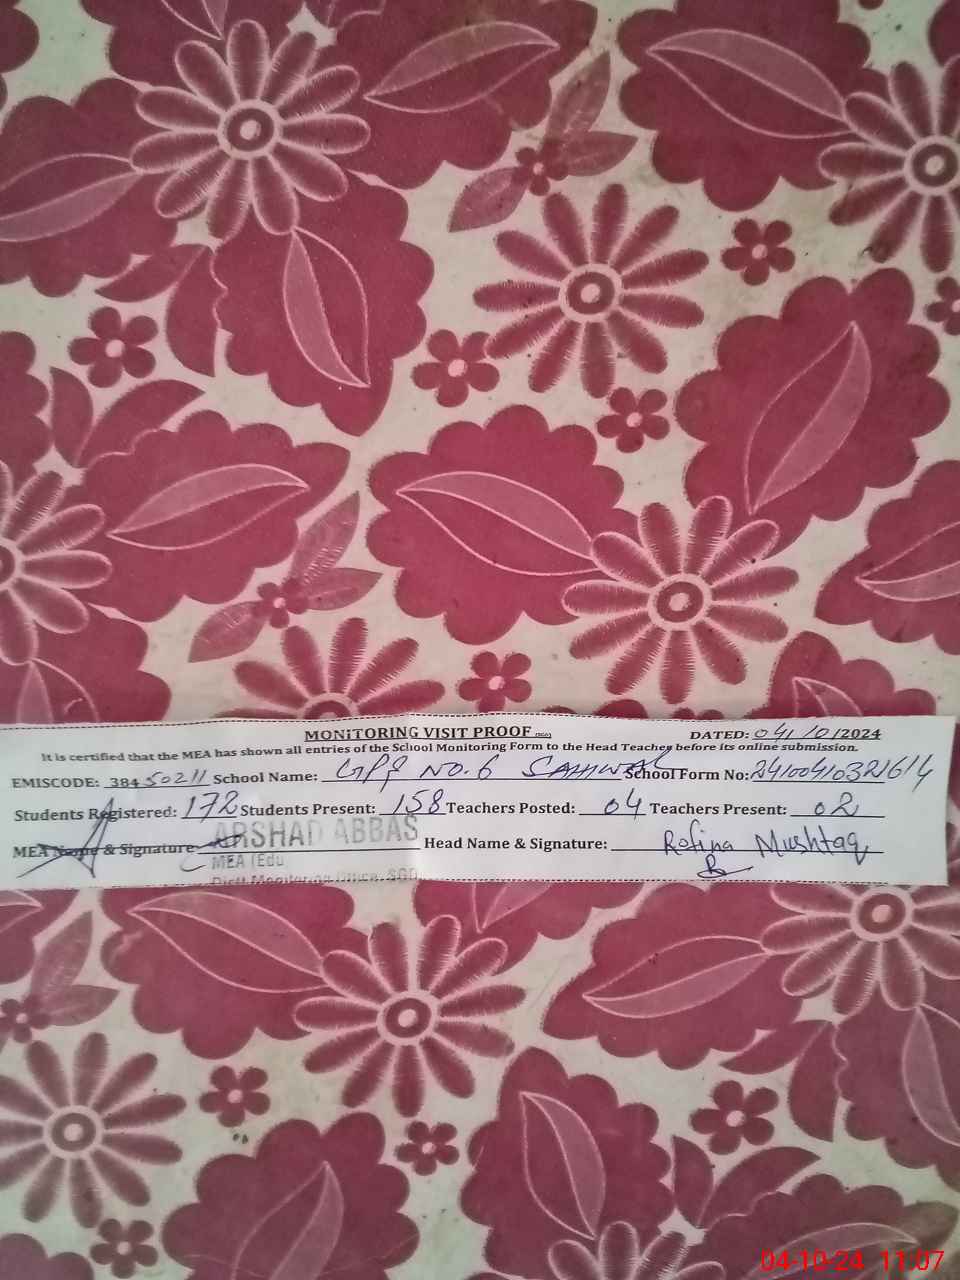 MONITORING VISIT PROOF
DATED: 04/10/2024
It is certified that the MEA has shown all entries of the School Monitoring Form to the Head Teacher before its online submission.
EMISCODE: 38450211 School Name: GPS NO.6 SAHIWAL School Form No: 24100410321614
Students Registered: 172 Students Present: 158 Teachers Posted: 04 Teachers Present: 02
MEA Name & Signature: ARSHAD ABBAS Head Name & Signature: Rofina Mushtaq
MEA (Edu
Distt Monitoring Office, SGD
04-10-24 11:07